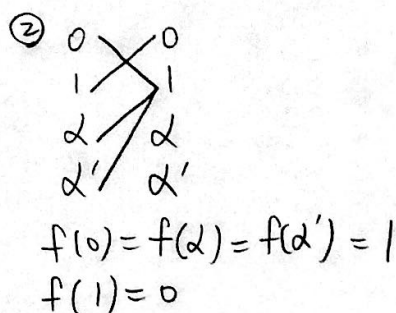 ② 0 0
1 1
α α
α' α'
f(0) = f(α) = f(α') = 1
f(1) = 0